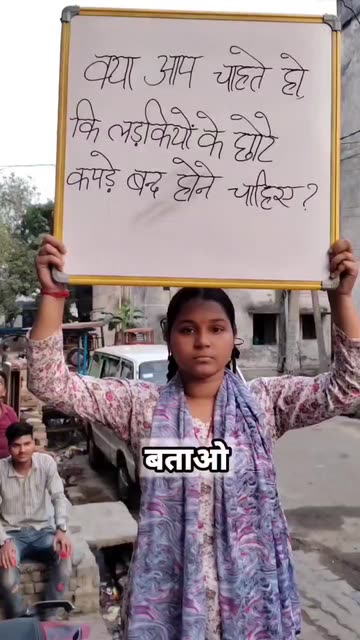 क्या आप चाहते हो
कि लड़कियों के छोटे
कपड़े बन्द होने चाहिए?
बताओ